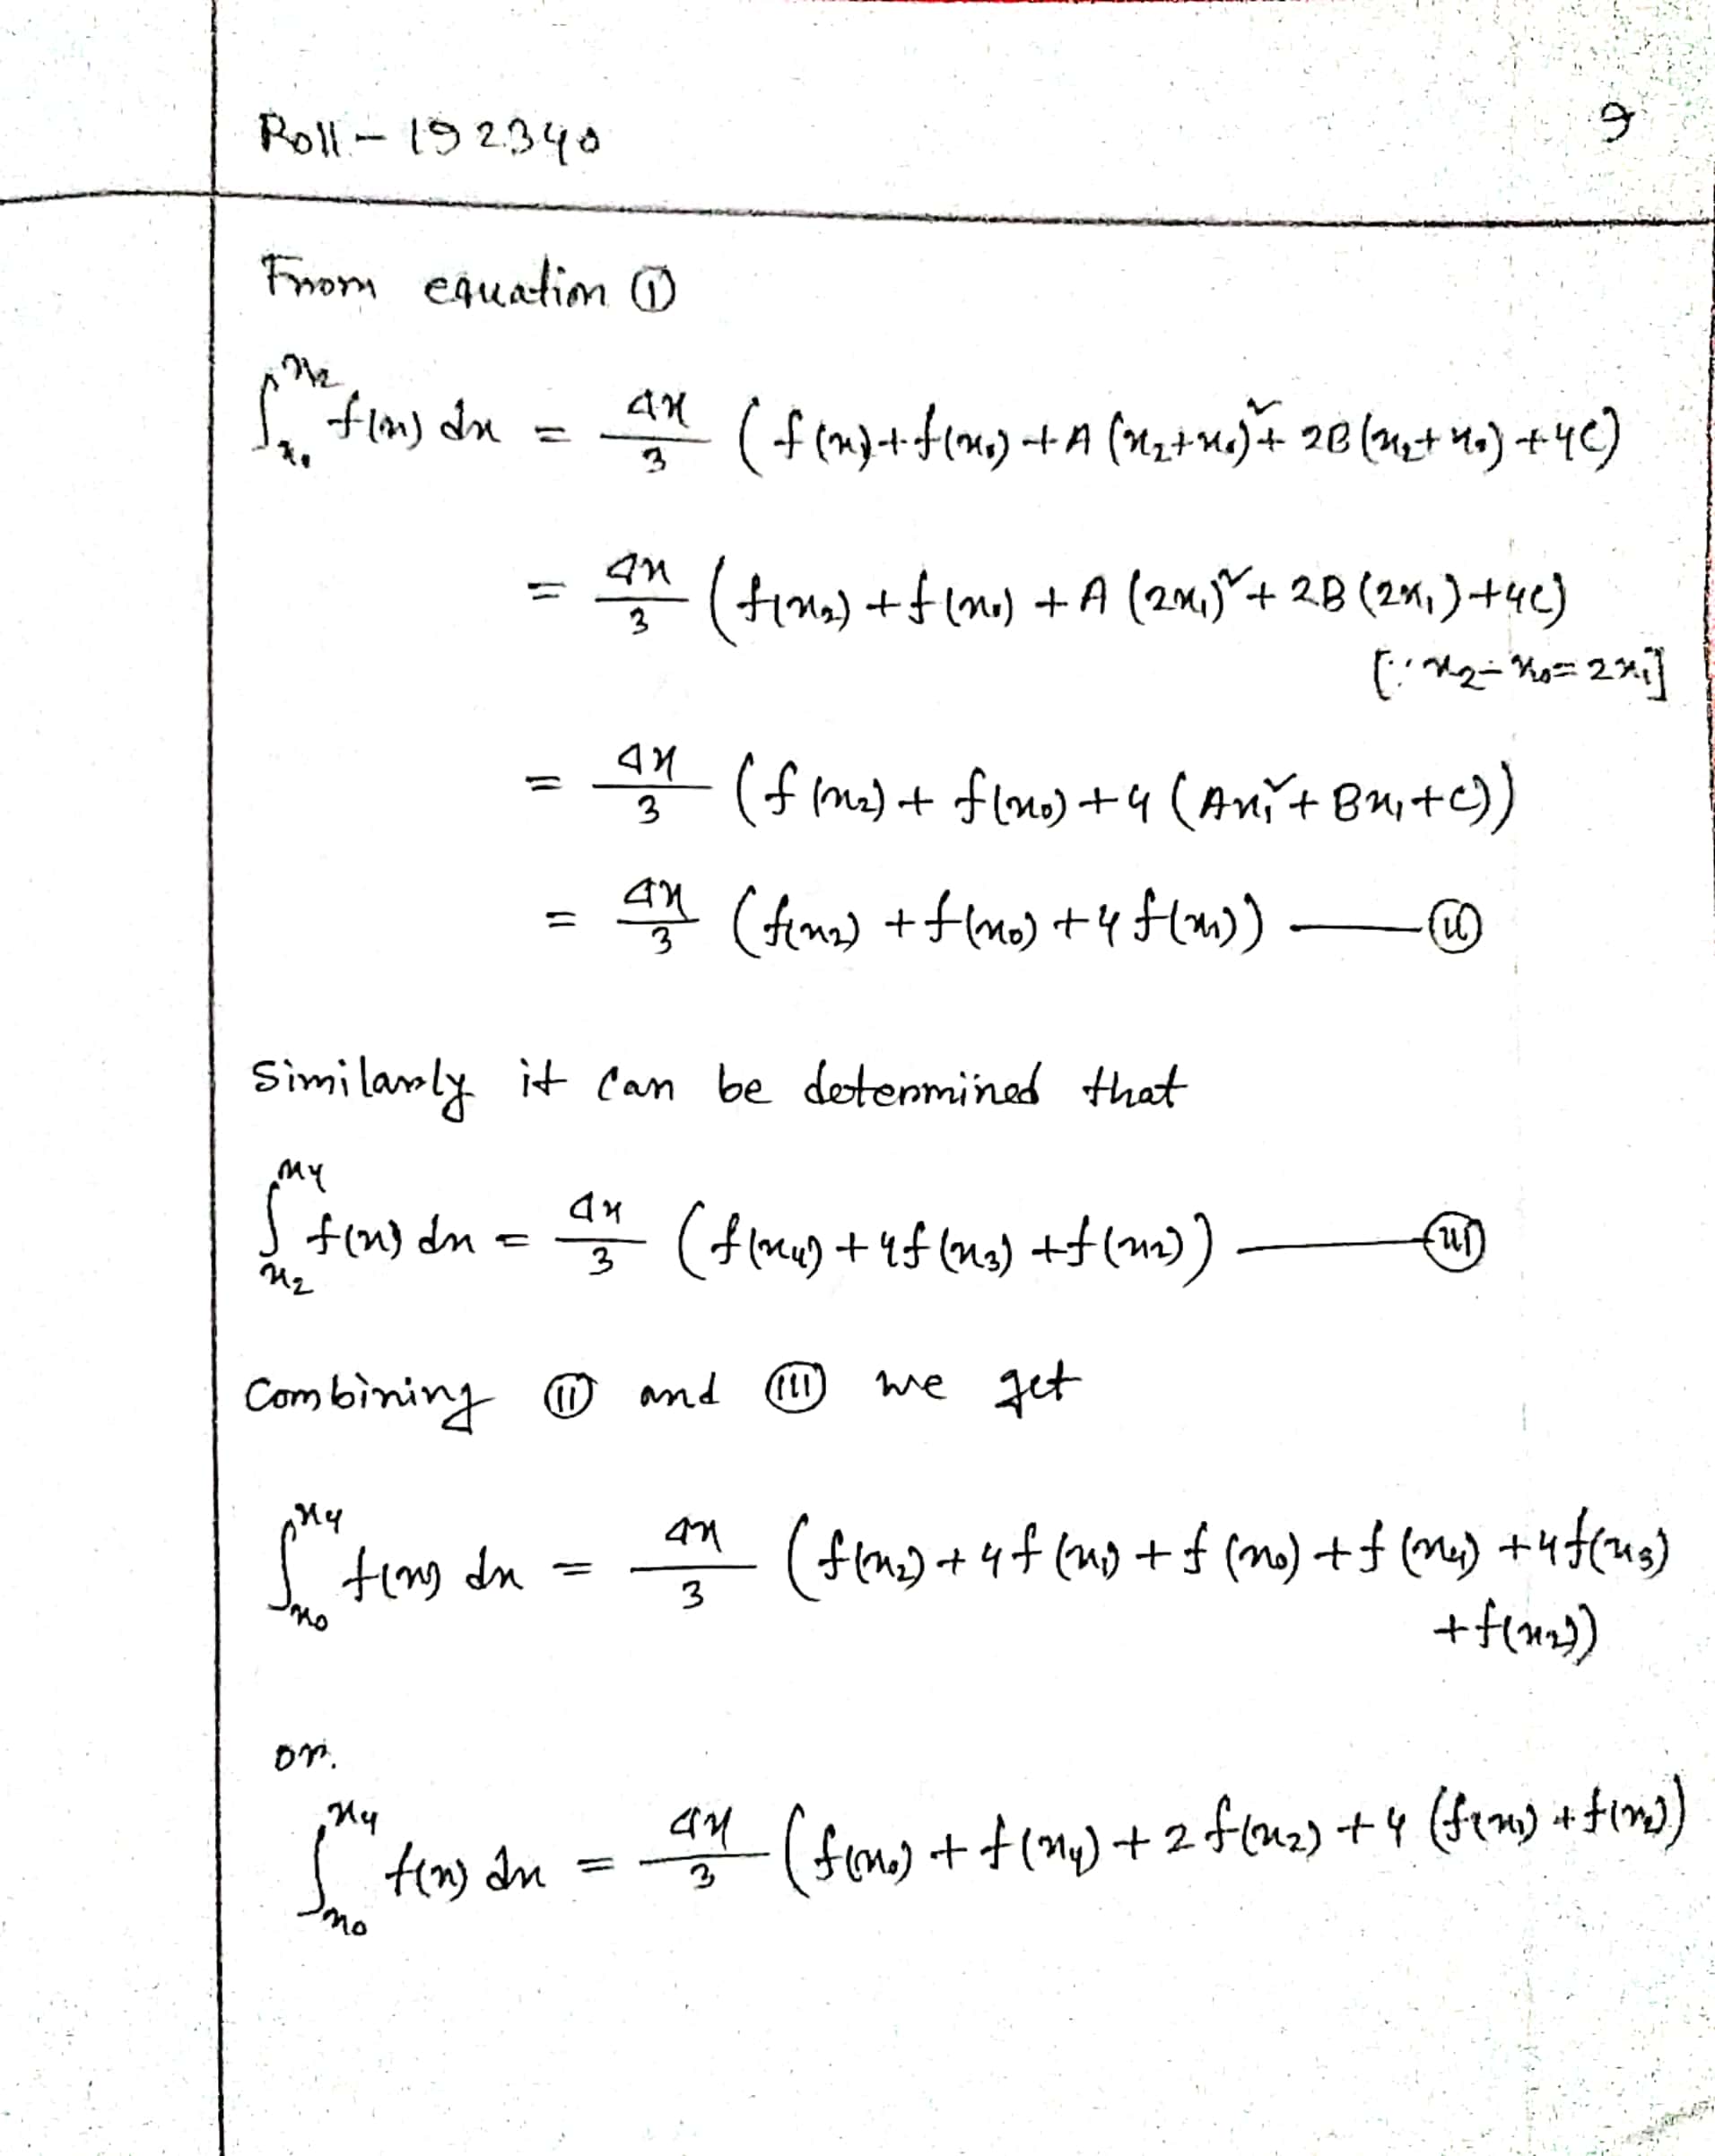 Roll - 192340
9
From equation ①
∫_{x₀}^{x₂} f(x) dx = Δx/3 (f(x₂)+f(x₀)+A(x₂+x₀)²+2B(x₂+x₀)+4C)
= Δx/3 (f(x₂)+f(x₀)+A(2x₁)²+2B(2x₁)+4C)
[∵ x₂-x₀=2x₁]
= Δx/3 (f(x₂)+f(x₀)+4(Ax₁²+Bx₁+C))
= Δx/3 (f(x₂)+f(x₀)+4f(x₁)) —— ⓘⓘ
Similarly it can be determined that
∫_{x₂}^{x₄} f(x) dx = Δx/3 (f(x₄)+4f(x₃)+f(x₂)) —— ⓘⓘⓘ
Combining ⓘⓘ and ⓘⓘⓘ we get
∫_{x₀}^{x₄} f(x) dx = Δx/3 (f(x₂)+4f(x₁)+f(x₀)+f(x₄)+4f(x₃)
+f(x₂))
or.
∫_{x₀}^{x₄} f(x) dx = Δx/3 (f(x₀)+f(x₄)+2f(x₂)+4(f(x₁)+f(x₃))